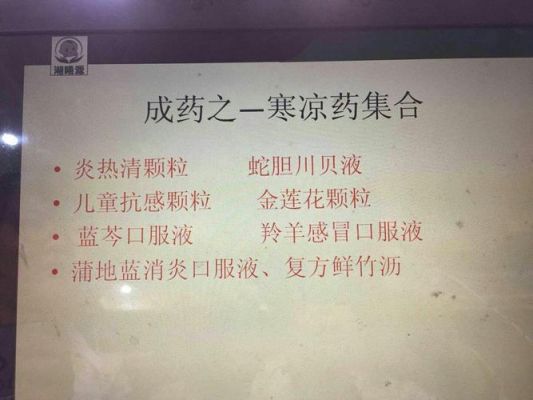 成药之—寒凉药集合
• 炎热清颗粒 蛇胆川贝液
• 儿童抗感颗粒 金莲花颗粒
• 蓝芩口服液 羚羊感冒口服液
• 蒲地蓝消炎口服液、复方鲜竹沥